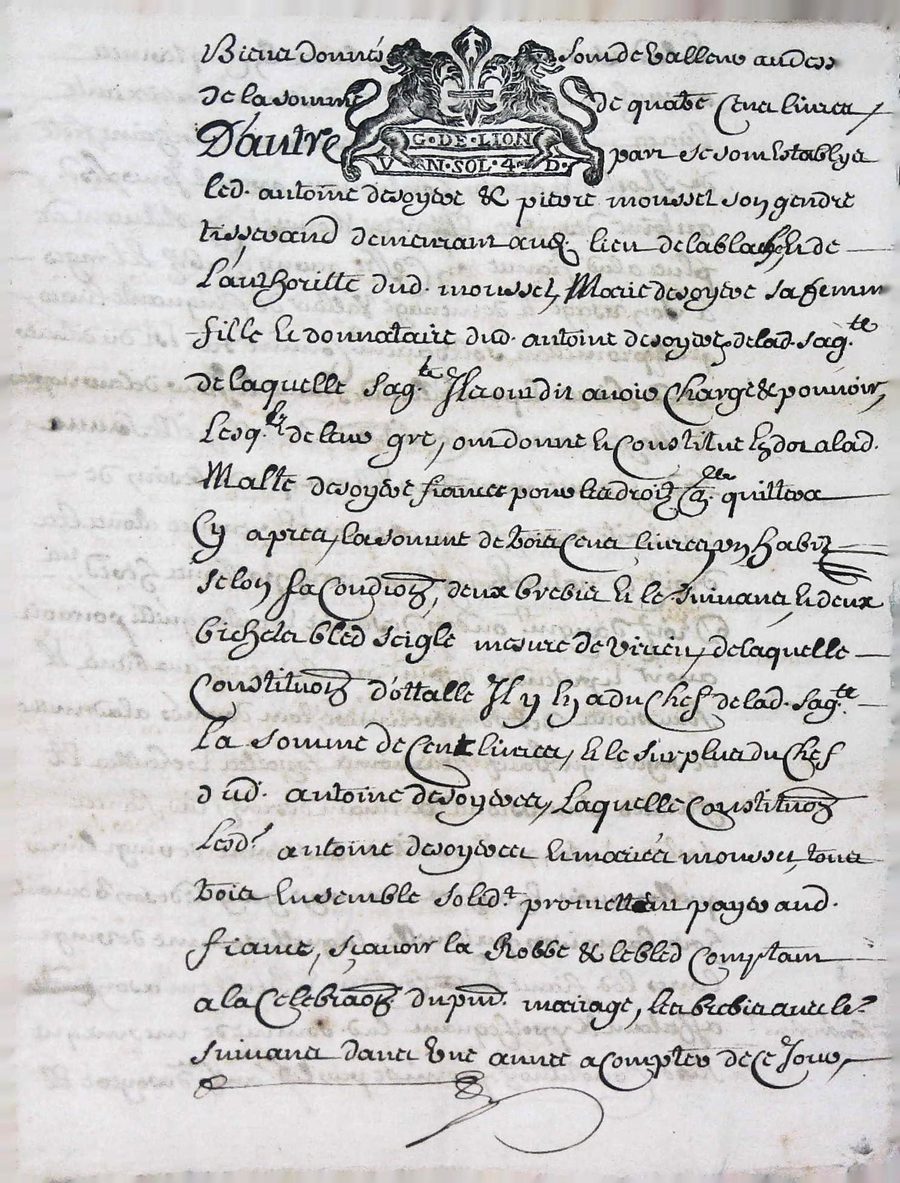 Biens donnés sont de valleur audess
de la somme de quatre Cents livres
D'autre part se sont Establys
G·DE·LION
V N·SOL·4·D·
led. antoine desoyere & pierre mousset son gendre
tisserand demeurant aud. lieu de la blache, de
L'authoritté dud. mousset, Marie desoyere sa femme
fille & donnataire dud. antoine desoyere, & de lad. sag.te
de laquelle sag.te Ils ont dit avoir Charge & pouvoir,
Lesq.ls de leur gré, ont donné et Constitué En dot a lad.
desoyere fiancée pour les droits q. quittera
Cy apres, la somme de trois Cents livres, un habit
selon sa Condi͠on, deux brebis et le suivants, et deux
bichets bled seigle mesure de virieu, de laquelle
Constituti͠on d'ottalle Il y En a du Chef de lad. sag.te
La somme de Cent livres, et le surplus du Chef
dud. antoine desoyeres, Laquelle Constituti͠on
Lesd.s antoine desoyeres et mariés mousset, tous
trois Ensemble solid.t promettent payer aud.
fiancé, sçavoir la Robbe & le bled Comptant
a la Celebra͠on du p̄nt. mariage, les brebis avec le.s
suivants dans une année a Compter de Ce Jour,